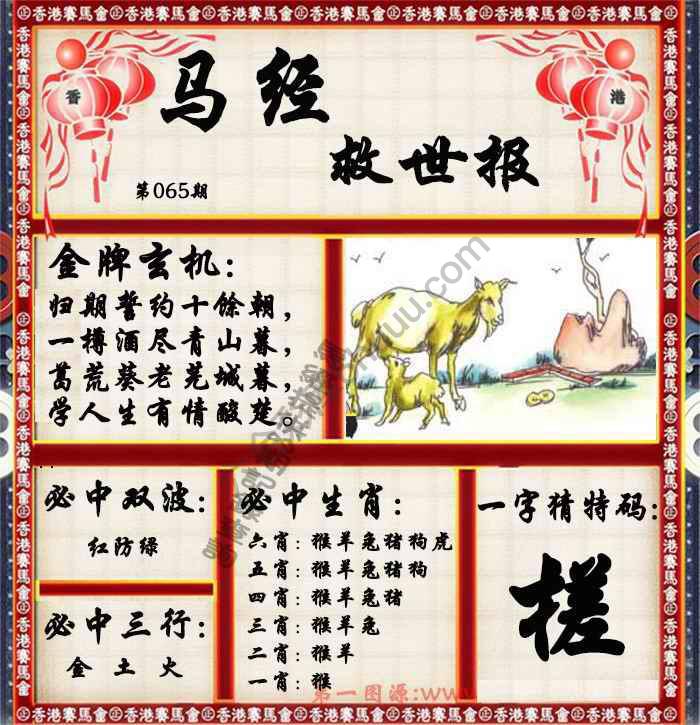 香港賽馬會
香 港
马经
救世报
第065期
金牌玄机：
归期誓约十馀朝，
一樽酒尽青山暮，
葛荒葵老芜城暮，
学人生有情酸楚。
必中双波：
红防绿
必中三行：
金 土 火
必中生肖：
六肖：猴羊兔猪狗虎
五肖：猴羊兔猪狗
四肖：猴羊兔猪
三肖：猴羊兔
二肖：猴羊
一肖：猴
一字猜特码：
槎
第一图源:www